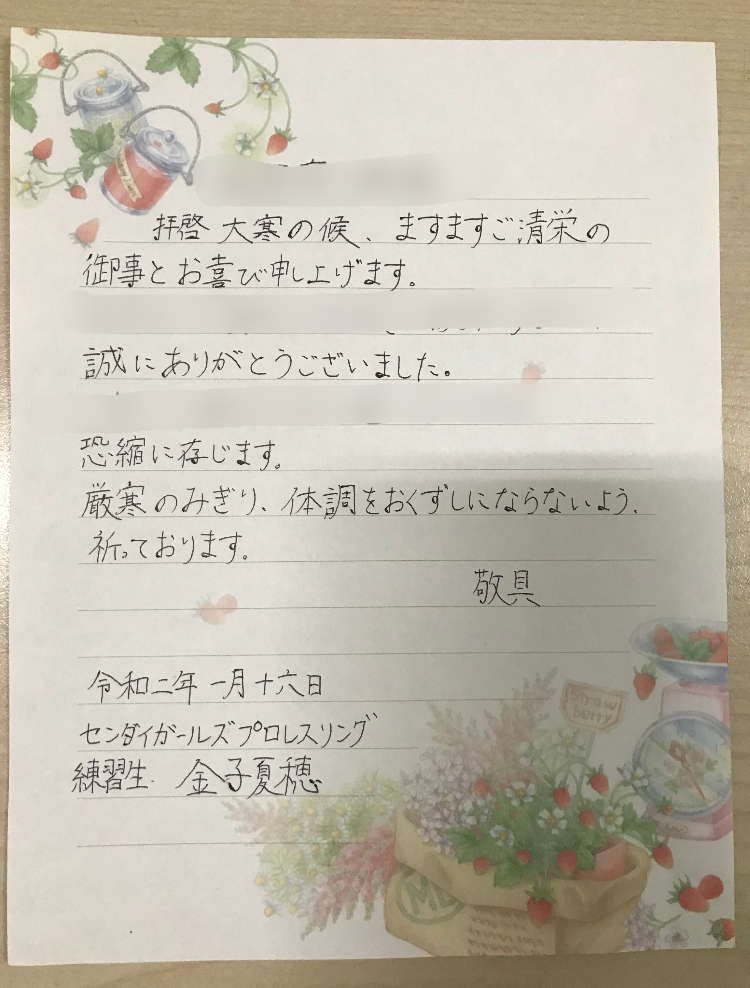 拝啓 大寒の候、ますますご清栄の
御事とお喜び申し上げます。
誠にありがとうございました。
恐縮に存じます。
厳寒のみぎり、体調をおくずしにならないよう、
祈っております。
敬具
令和二年 一月十六日
センダイガールズプロレスリング
練習生 金子夏穂
Straw
berry